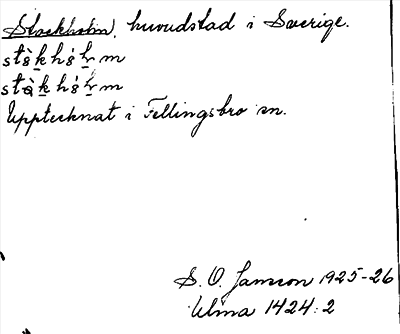 Stockholm, huvudstad i Sverige.
Upptecknat i Fellingsbro sn.
S. O. Jansson 1925-26
Ulma 1424:2